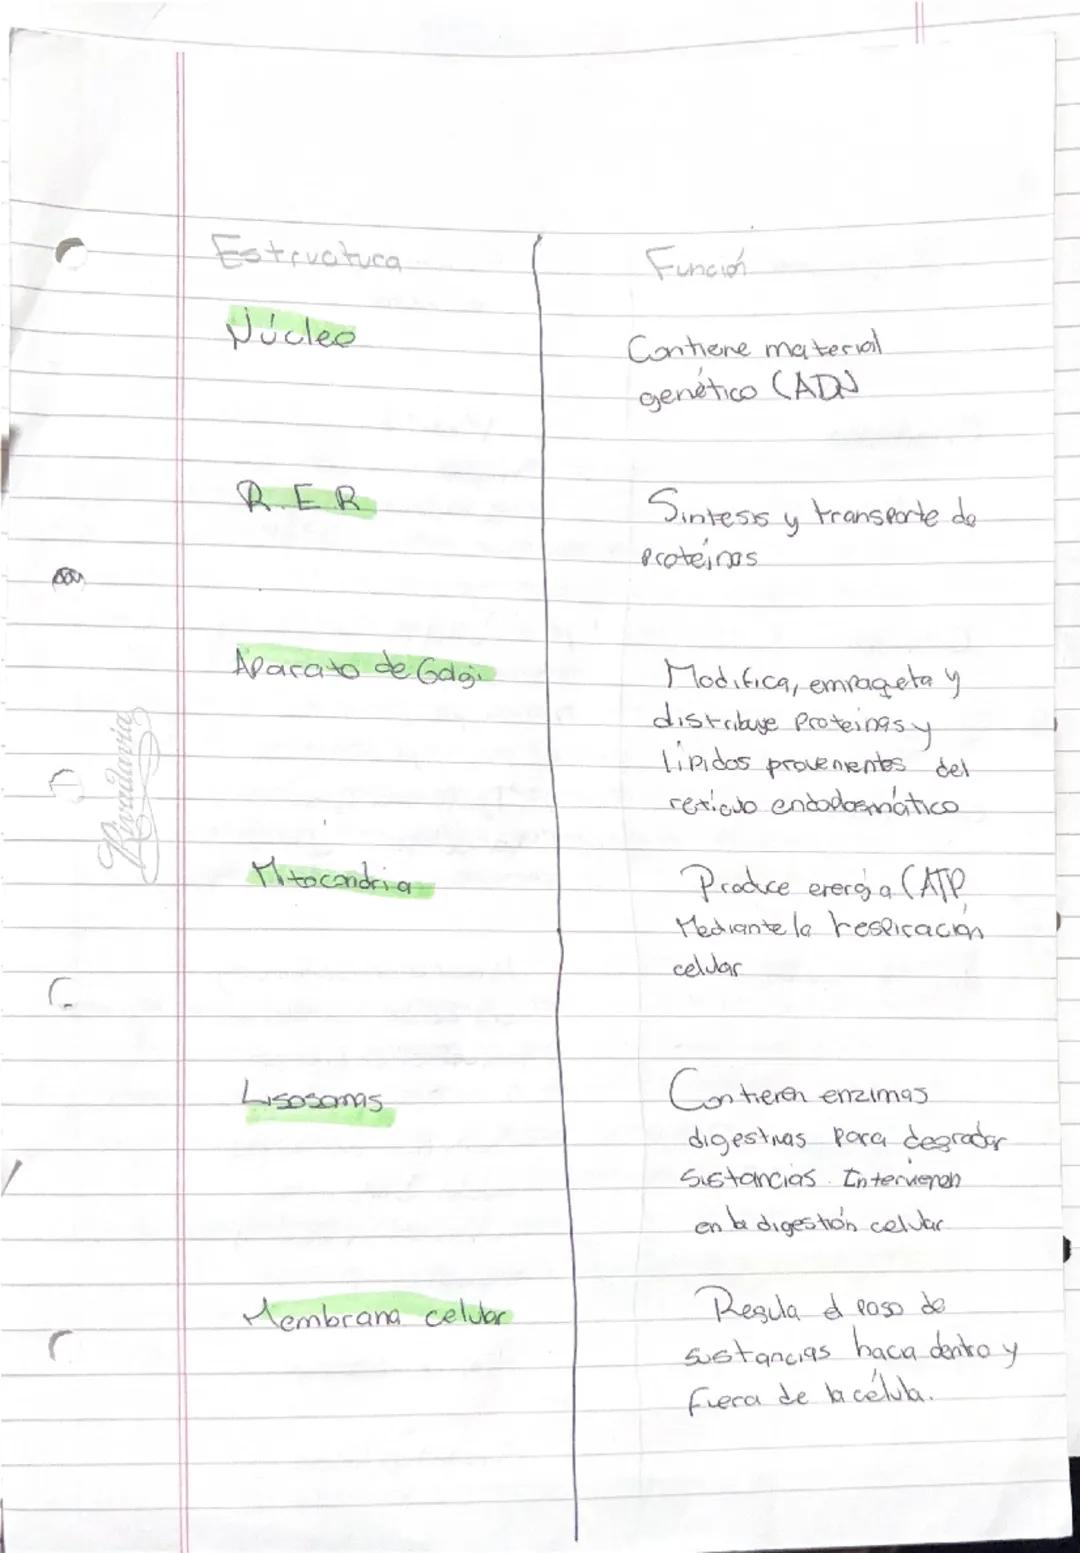 Estructura
Función
Núcleo
Contiene material
genético (ADN
R.E.R
Sintesis y transporte de
proteínas
Aparato de Golgi
Modifica, empaqueta y
distribuye proteinas y
lípidos provenientes del
retículo endodosmático
Mitocondria
Produce energía (ATP
Mediante la respiración
celular
Lisosomas
Contienen enzimas
digestivas para degradar
sustancias. Intervienen
en la digestión celular
Membrana celular
Regula el paso de
sustancias hacia dentro y
fuera de la célula.
Rivadavia